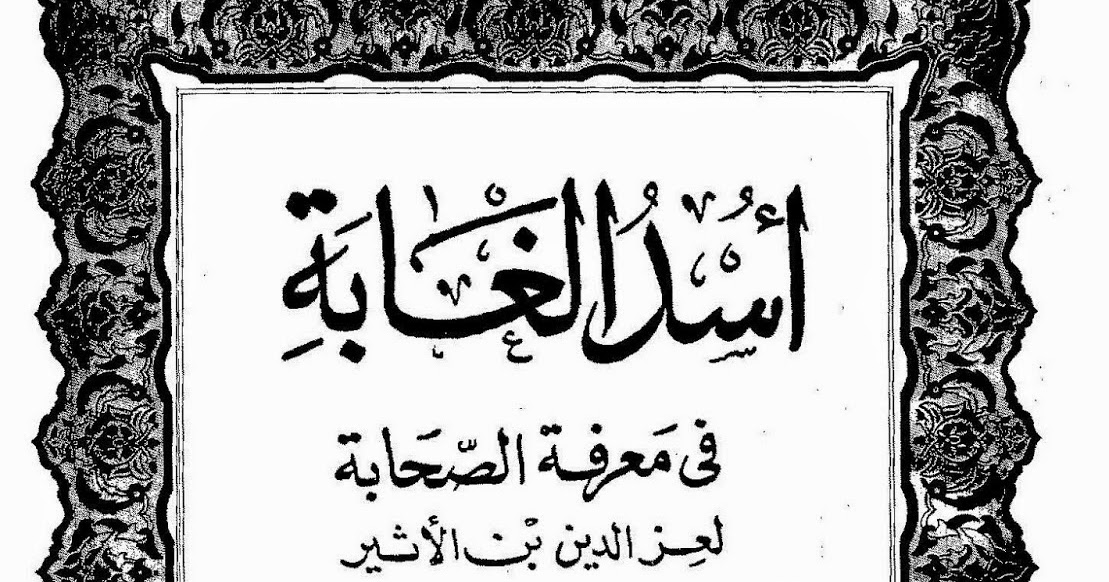 أُسْدُ الْغَابَةِ
فى مَعرفة الصّحَابة
لعز الدين بْن الأثير